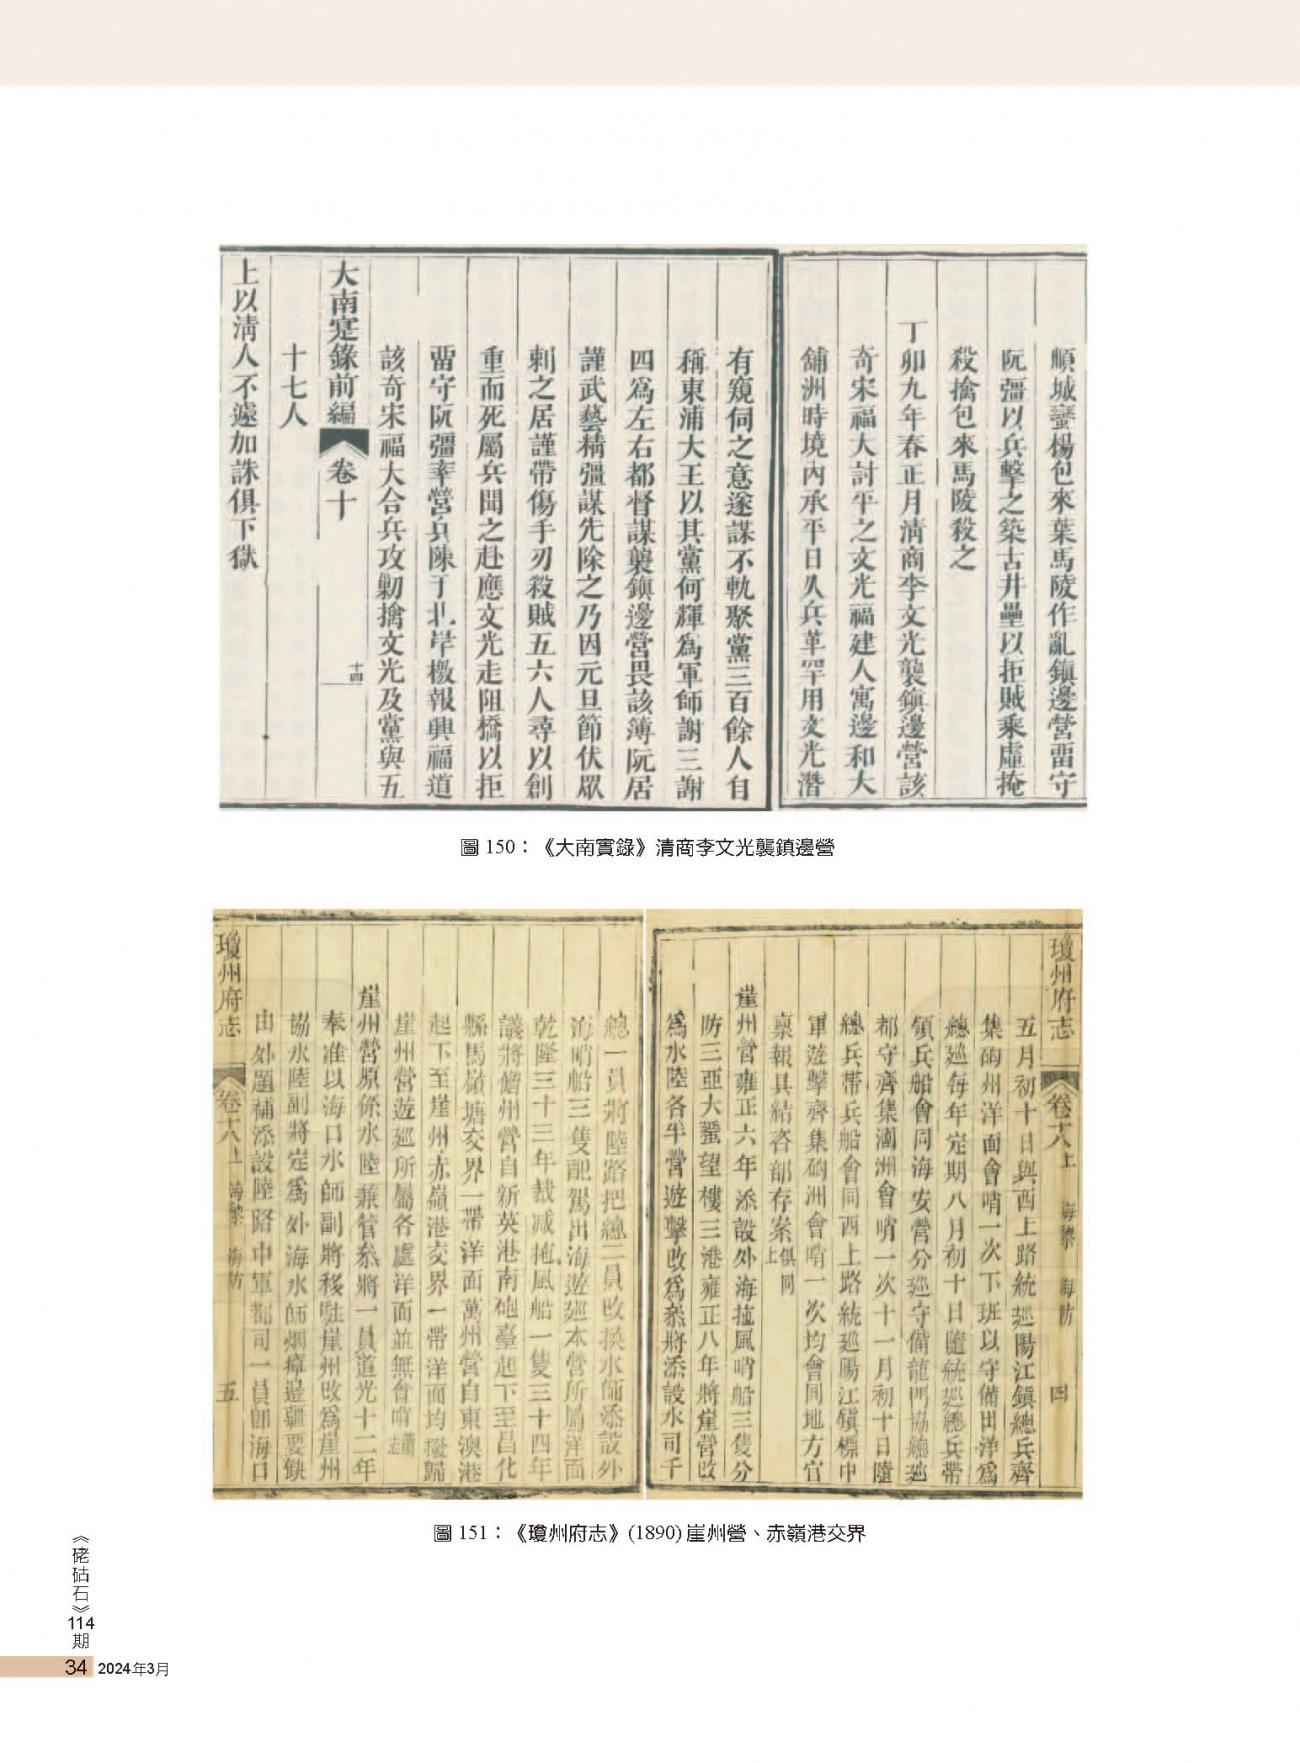 順城蠻楊包來葉馬陵作亂鎮邊營畱守
阮彊以兵擊之築古井壘以拒賊乘虛掩
殺擒包來馬陵殺之
丁卯九年春正月清商李文光襲鎮邊營該
奇宋福大討平之文光福建人寓邊和大
舖洲時境內承平日久兵革罕用文光潛
有窺伺之意遂謀不軌聚黨三百餘人自
稱東浦大王以其黨何輝爲軍師謝三謝
四爲左右都督謀襲鎮邊營畏該簿阮居
謹武藝精彊謀先除之乃因元旦節伏眾
刺之居謹帶傷手刃殺賊五六人尋以創
重而死屬兵聞之赴應文光走阻橋以拒
畱守阮彊率營兵陳于北岸檄報興福道
該奇宋福大合兵攻勦擒文光及黨與五
大南寔錄前編 卷十 十四
十七人
上以清人不遽加誅俱下獄
圖 150：《大南實錄》清商李文光襲鎮邊營
瓊州府志 卷十八上 海黎 海防 四
五月初十日與西上路統廵陽江鎮總兵齊
集硇州洋面會哨一次下班以守備出洋爲
總廵每年定期八月初十日隨統廵總兵帶
領兵船會同海安營分廵守備龍門協總廵
都守齊集潿洲會哨一次十一月初十日隨
總兵帶兵船會同西上路統廵陽江鎮標中
軍遊擊齊集硇洲會哨一次均會同地方官
稟報具結咨部存案俱同上
崖州營雍正六年添設外海拖風哨船三隻分
防三亞大蜑望樓三港雍正八年將崖營改
爲水陸各半營遊擊改爲叅將添設水司千
總一員將陸路把總二員改換水師添設外
海哨船三隻配駕出海遊廵本營所屬洋面
乾隆三十三年裁減拖風船一隻三十四年
議將儋州營自新英港南砲臺起下至昌化
縣馬嶺塘交界一帶洋面萬州營自東澳港
起下至崖州赤嶺港交界一帶洋面均撥歸
崖州營遊廵所屬各處洋面並無會哨蕭志
崖州營原係水陸兼管叅將一員道光十二年
奉准以海口水師副將移駐崖州改爲崖州
協水陸副將定爲外海水師烟瘴邊疆要缺
由外題補添設陸路中軍都司一員卽海口
瓊州府志 卷十八上 海黎 海防 五
圖 151：《瓊州府志》(1890) 崖州營、赤嶺港交界
《硓𥑮石》114期
34 2024年3月